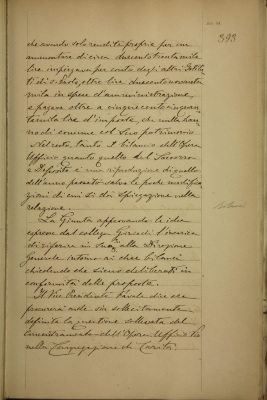 393
che avendo solo rendite proprie per un
ammontare di circa duecentotrentamila
lire impiegava per conto degli altri Istitu
ti di S. Paolo, oltre lire duecentonovanta
mila in spese d'amministrazione,
e pagava oltre a cinquecentocinquan
tamila lire d'imposte, che nulla han
no di comune col suo patrimonio.
Nel resto, tanto il bilancio dell'Opera
Ufficio quanto quello del Soccorso
e Deposito è una riproduzione di quello
dell'anno passato salvo le poche modifica
zioni di cui si dà spiegazione nella
relazione.
La Giunta approvando le idee
espresse dal collega Gariel l'incarica
di riferire in sua alla Direzione
generale intorno ai due bilanci
chiedendo che siano deliberati in
conformità delle proposte.
Il Vice Presidente Favale dice che
procurerà onde sia sollecitamente
definita la questione sollevata dal
concentramento dell'Opera Ufficio Pio
nella Congregazione di Carità.
Bilanci